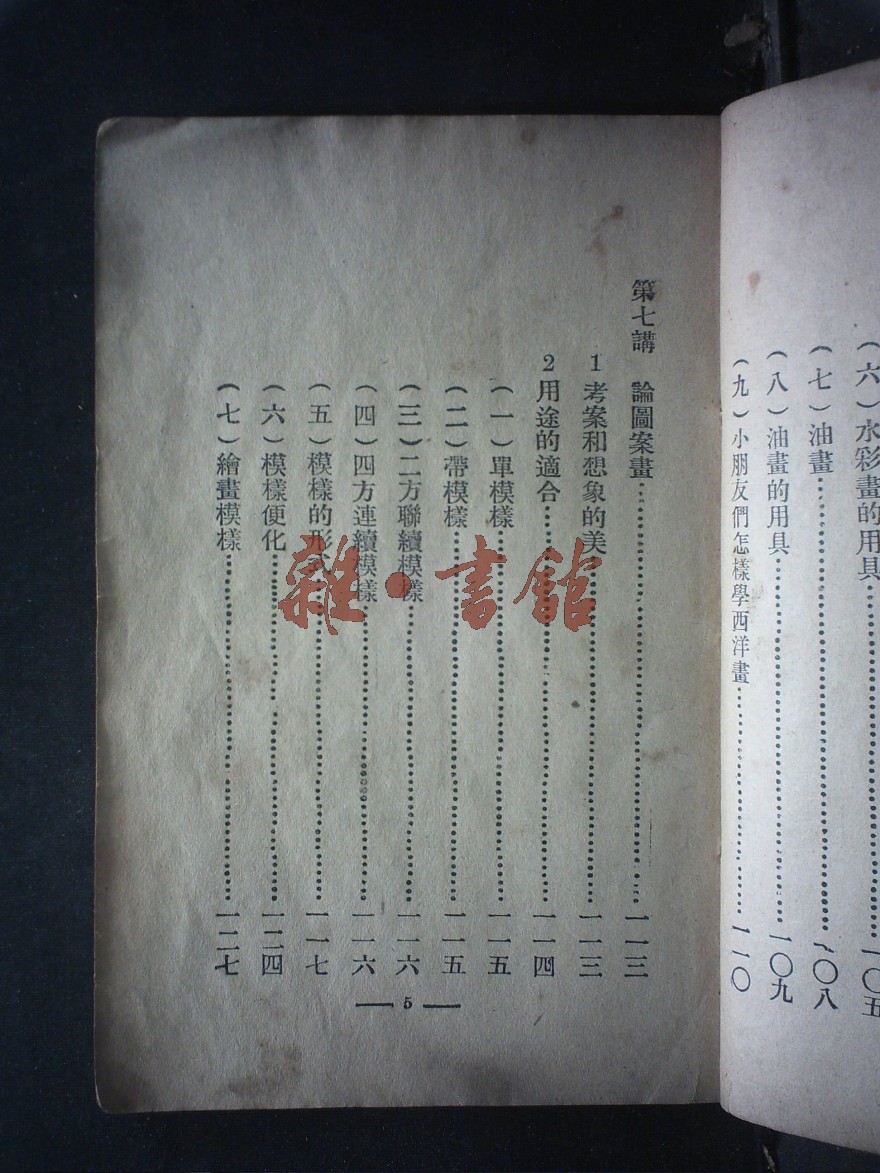 （六）水彩畫的用具…………一〇五
（七）油畫…………一〇八
（八）油畫的用具…………一〇九
（九）小朋友們怎樣學西洋畫…………一一〇
第七講　論圖案畫…………一一三
1 考案和想象的美…………一一三
2 用途的適合…………一一四
（一）單模樣…………一一五
（二）帶模樣…………一一五
（三）二方聯續模樣…………一一六
（四）四方連續模樣…………一一六
（五）模樣的形式…………一一七
（六）模樣便化…………一二四
（七）繪畫模樣…………一二七
— 5 —
雜·書館